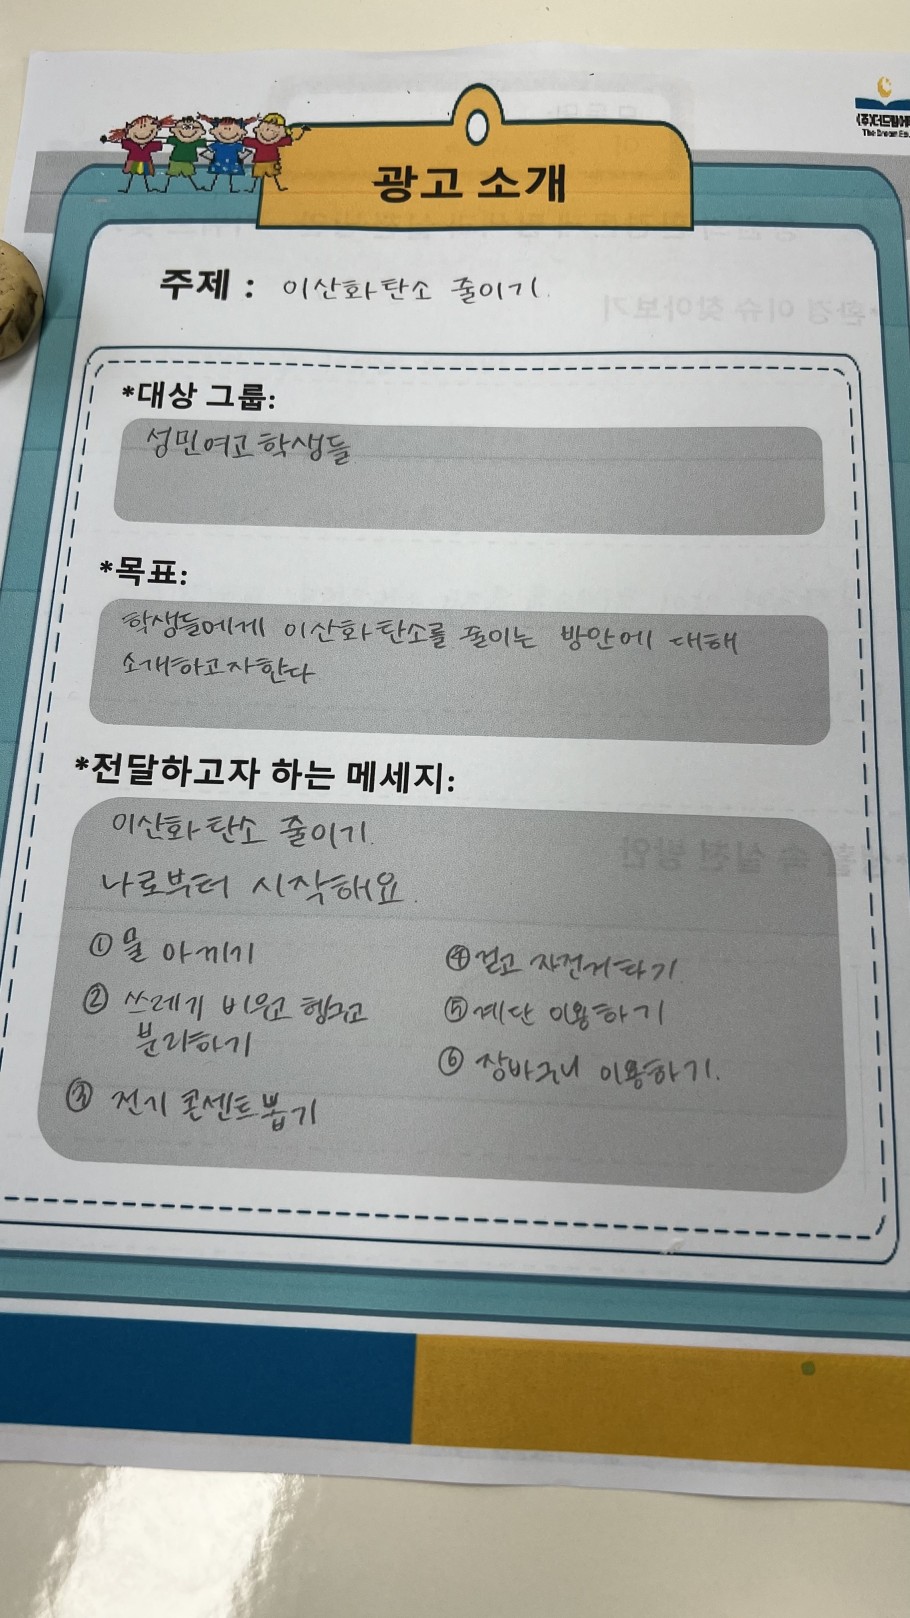 (주)더드림에듀
The Dream Ed
광고 소개
주제 : 이산화탄소 줄이기.
*대상 그룹:
성민여고 학생들
*목표:
학생들에게 이산화탄소를 줄이는 방안에 대해
소개하고자한다
*전달하고자 하는 메세지:
이산화탄소 줄이기.
나로부터 시작해요.
① 물 아끼기
② 쓰레기 비우고 헹구고
분리하기
③ 전기 콘센트 뽑기
④ 걷고 자전거타기
⑤ 계단 이용하기
⑥ 장바구니 이용하기.